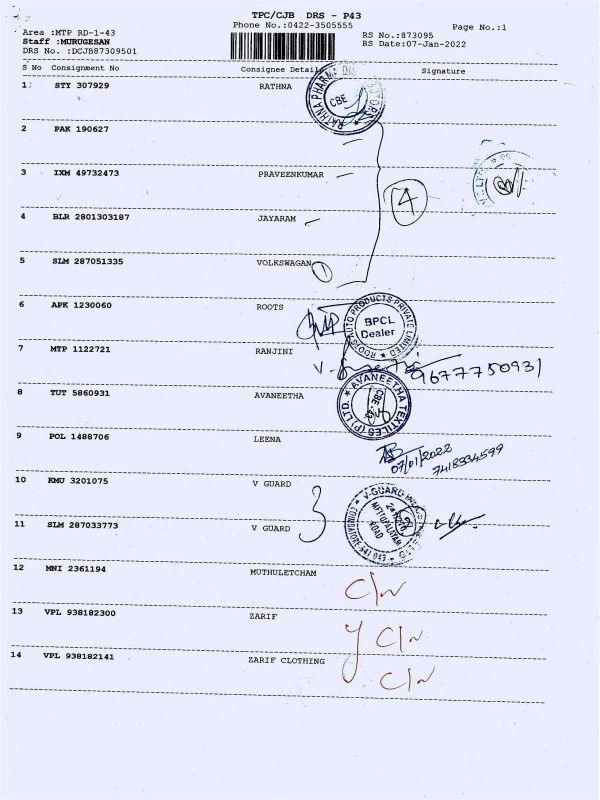 TPC/CJB DRS - P43
Phone No.:0422-3505555
Page No.:1
Area :MTP RD-1-43
RS No.:873095
Staff :MURUGESAN
RS Date:07-Jan-2022
DRS No. :DCJB87309501
S No Consignment No Consignee Details Signature
1 STY 307929 RATHNA
RATHNA PHARMA
CBE
2 PAK 190627
3 IXM 49732473 PRAVEENKUMAR
4
4 BLR 2801303187 JAYARAM
5 SLM 287051335 VOLKSWAGAN 1
6 APK 1230060 ROOTS
ROOTS AUTO PRODUCTS PRIVATE LIMITED
BPCL
Dealer
7 MTP 1122721 RANJINI
9677750931
8 TUT 5860931 AVANEETHA
AVANEETHA TEXTILES (P) LTD.
CBE
9 POL 1488706 LEENA
07/01/2022
7418334599
10 KMU 3201075 V GUARD
3
V-GUARD
METTUPALAYAM
ROAD
11 SLM 287033773 V GUARD
12 MNI 2361194 MUTHULETCHAM
13 VPL 938182300 ZARIF
14 VPL 938182141 ZARIF CLOTHING